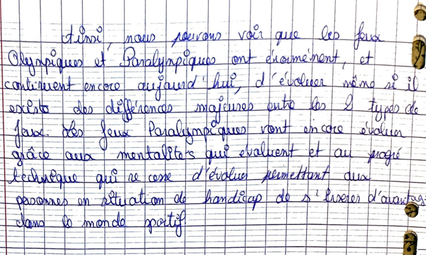 Ainsi, nous pouvons voir que les Jeux
Olympiques et Paralympiques ont énormément, et
continuent encore aujourd'hui, d'évoluer même si il
existe des différences majeures entre les 2 types de
Jeux. Les Jeux Paralympiques vont encore évoluer
grâce aux mentalités qui évoluent et au progrè
téchnique qui ne cesse d'évoluer permettant aux
personnes en situation de handicap de s'insérer d'avantage
dans le monde sportif.